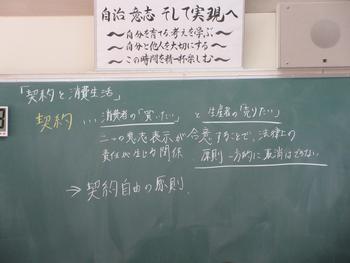 自治 意志 そして実現へ
～自分を育てる考えを学ぶ～
～自分と他人を大切にする～
～この時間を精一杯楽しむ～
「契約と消費生活」
契約 … 消費者の「買いたい」と生産者の「売りたい」
二つの意志表示が合意することで、法律上の
責任が生じる関係 原則一方的に取消はできない
→ 契約自由の原則